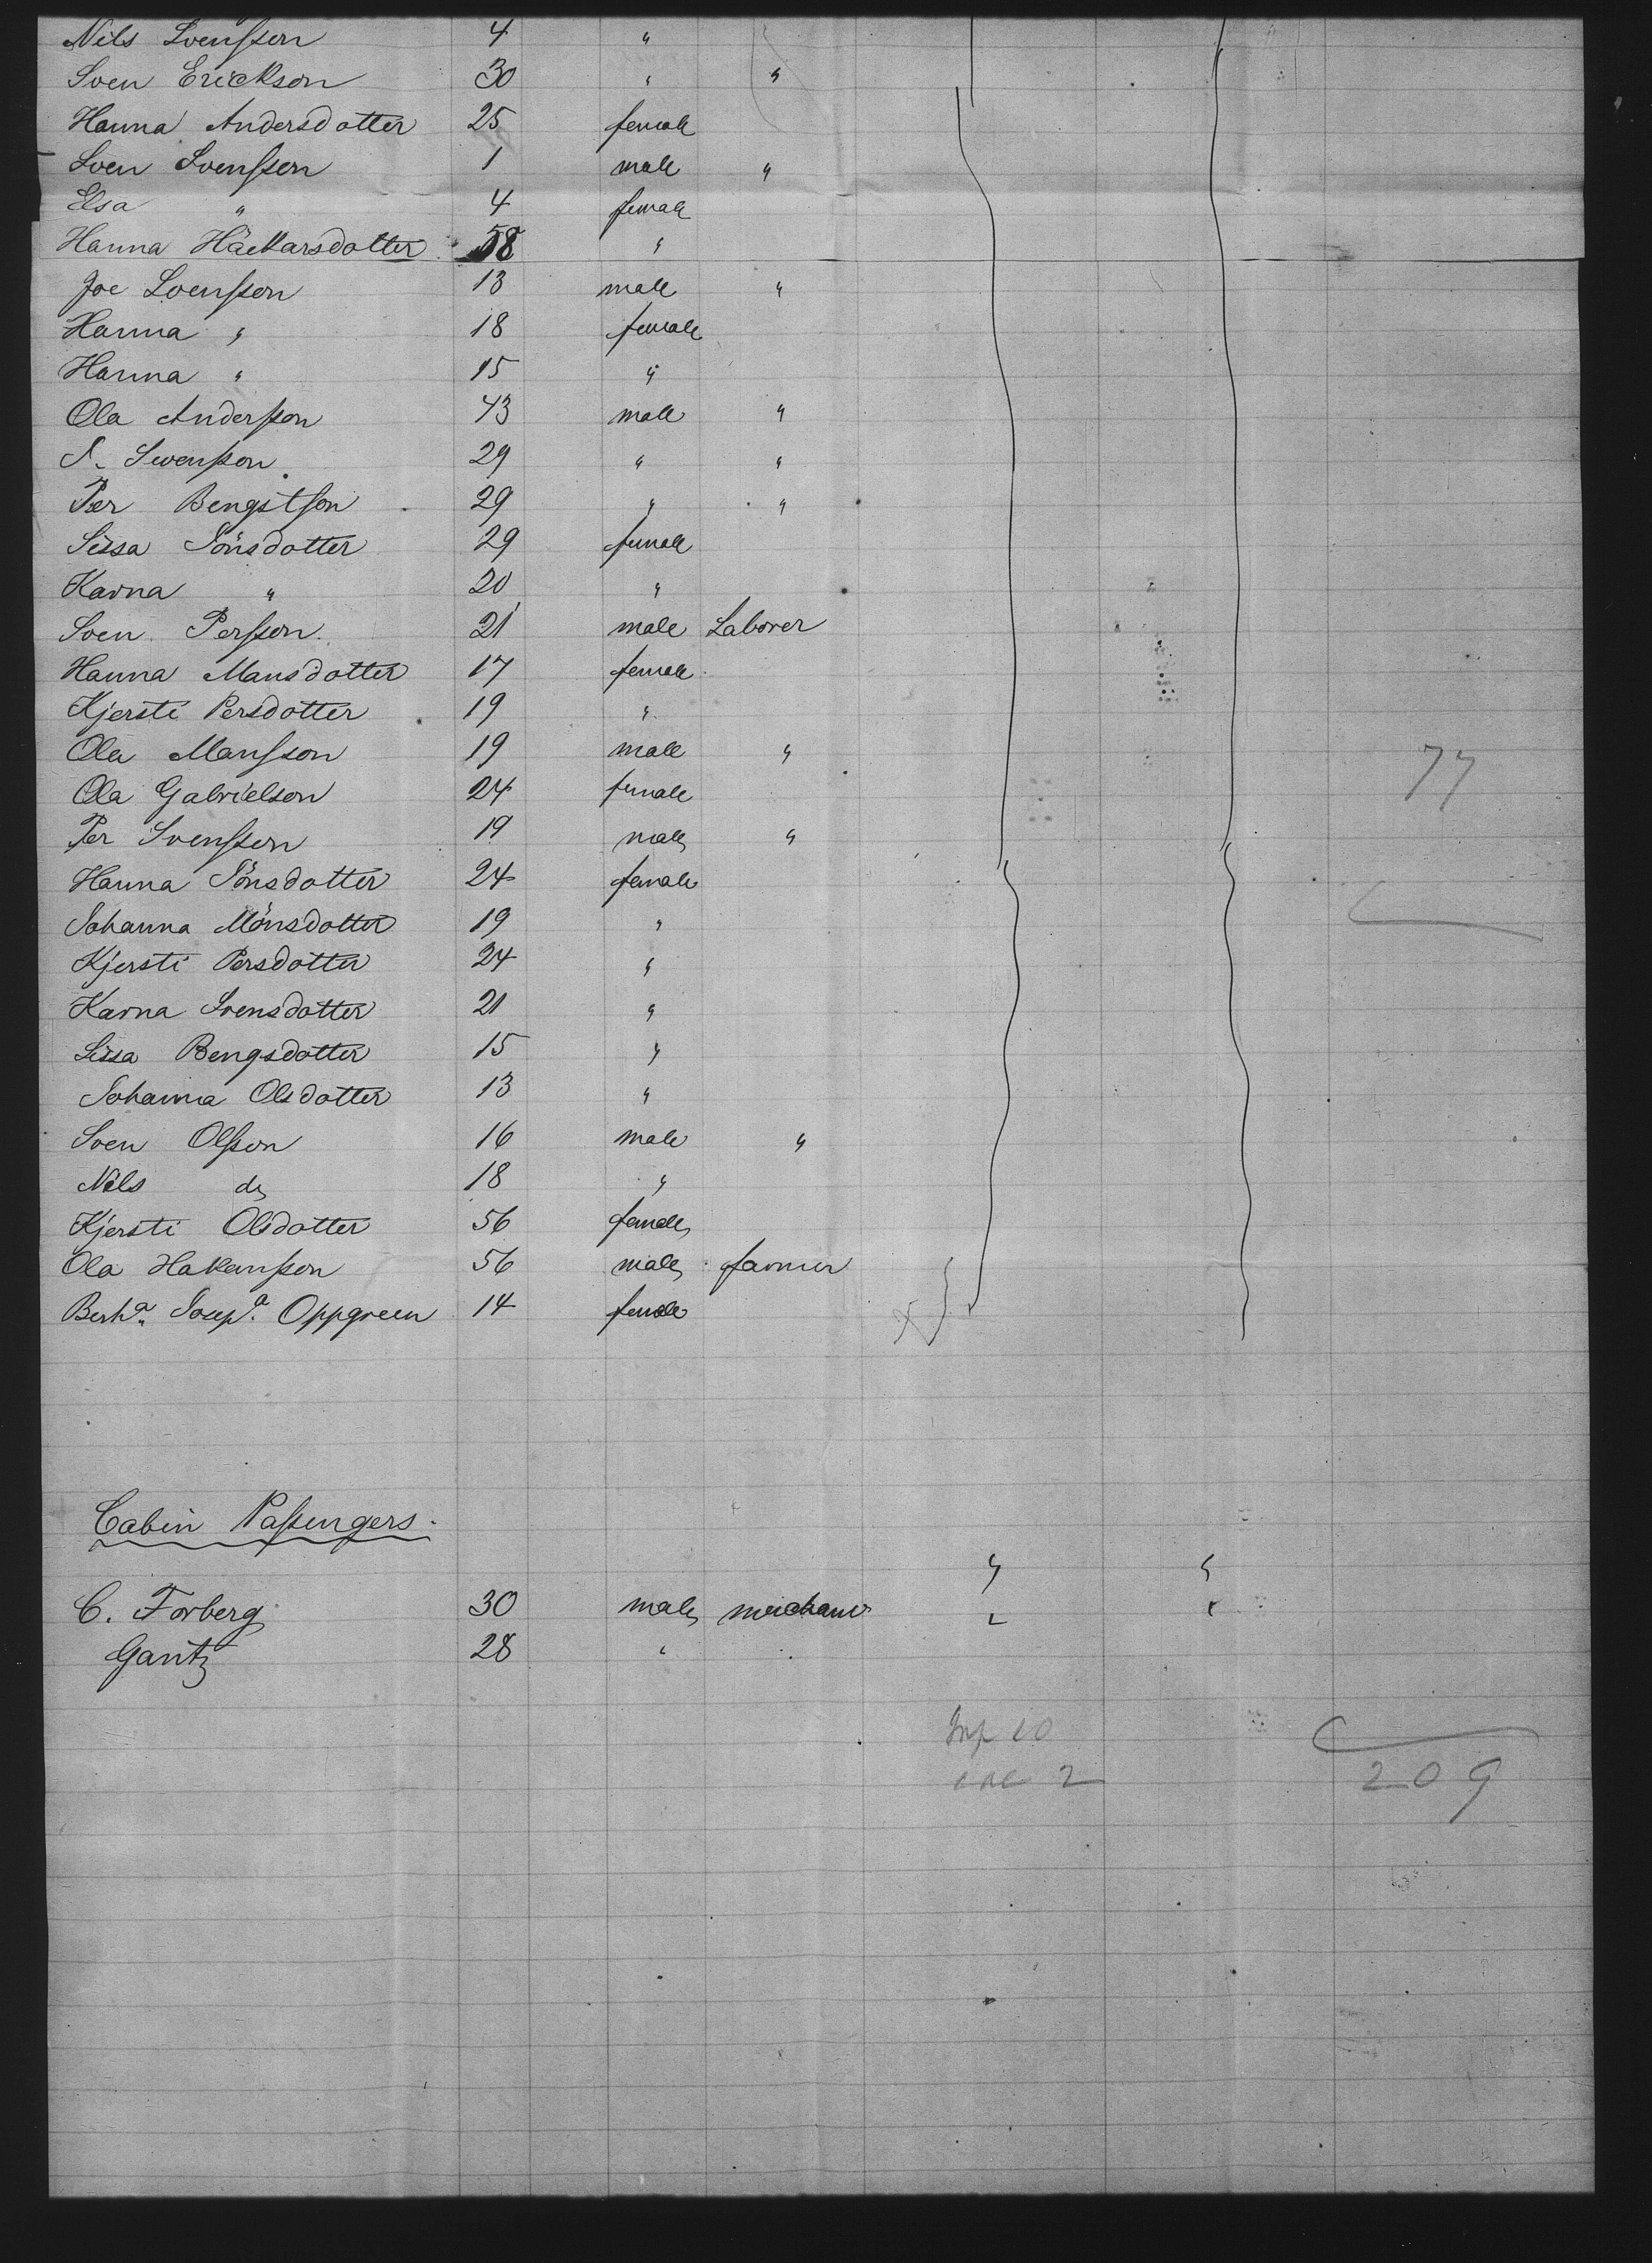 Nils Svensson 4 "
Sven Erickson 30 " "
Hanna Andersdotter 25 female
Sven Svensson 1 male "
Elsa " 4 female
Hanna Häckarsdotter 58 "
Joe Svensson 13 male "
Hanna " 18 female
Hanna " 15 "
Ola Andersson 43 male "
S. Swensson 29 " "
Per Bengstson 29 " "
Sissa Sönsdotter 29 female
Karna " 20 "
Sven Persson 21 male Laborer
Hanna Mansdotter 17 female
Kjersti Persdotter 19 "
Ola Mansson 19 male "
77
Ola Gabrielson 24 female
Per Svensson 19 male "
Hanna Sönsdotter 24 female
Johanna Mönsdotter 19 "
Kjersti Persdotter 24 "
Karna Svensdotter 21 "
Sissa Bengsdotter 15 "
Johanna Olsdotter 13 "
Sven Olsson 16 male "
Nils do 18 "
Kjersti Olsdotter 56 female
Ola Hakansson 56 male farmer
Berha. Josepa. Oppgreen 14 female
Cabin Passengers.
" "
C. Forberg 30 male merchant " "
Gantz 28 "
Inf 10
2
209